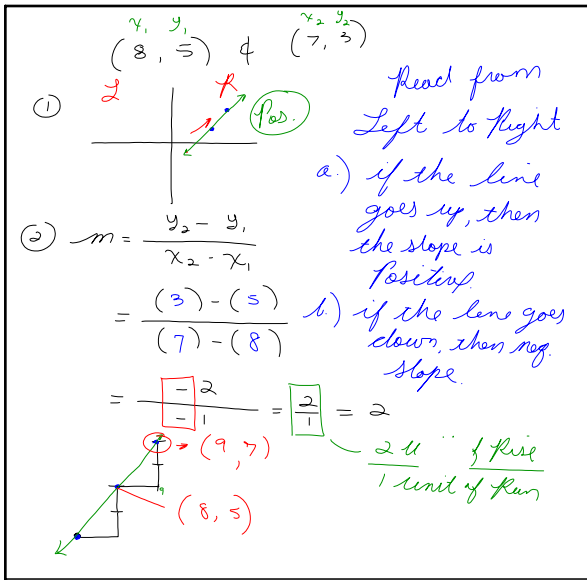 x₁ y₁ x₂ y₂
(8, 5) & (7, 3)
① L R Pos.
Read from
Left to Right
a.) if the line
goes up, then
the slope is
Positive.
② m = (y₂ - y₁)/(x₂ - x₁)
= ((3) - (5))/((7) - (8))
b.) if the line goes
down, then neg.
slope.
= (-2)/(-1) = 2/1 = 2
2 u " of Rise
1 unit of Run
→ (9, 7)
(8, 5)